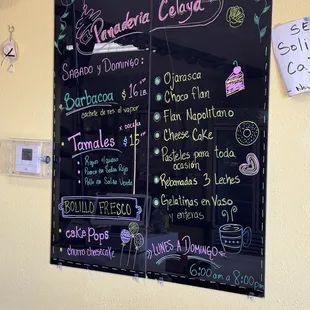 Panaderia Celaya
SABADO y DOMINGO:
Barbacoa $16 LB
cachete de res al vapor
x DOCENA
Tamales $15
Rajas c/queso
Puerco en Salsa Roja
Pollo en Salsa Verde
BOLILLO FRESCO
cake Pops
churro cheesecake
Ojarasca
Choco flan
Flan Napolitano
Cheese Cake
Pasteles para toda
ocasión
Rebanadas 3 Leches
Gelatinas en Vaso
y enteras
LUNES A DOMINGO
6:00am a 8:00pm
SE
Soli
Ca